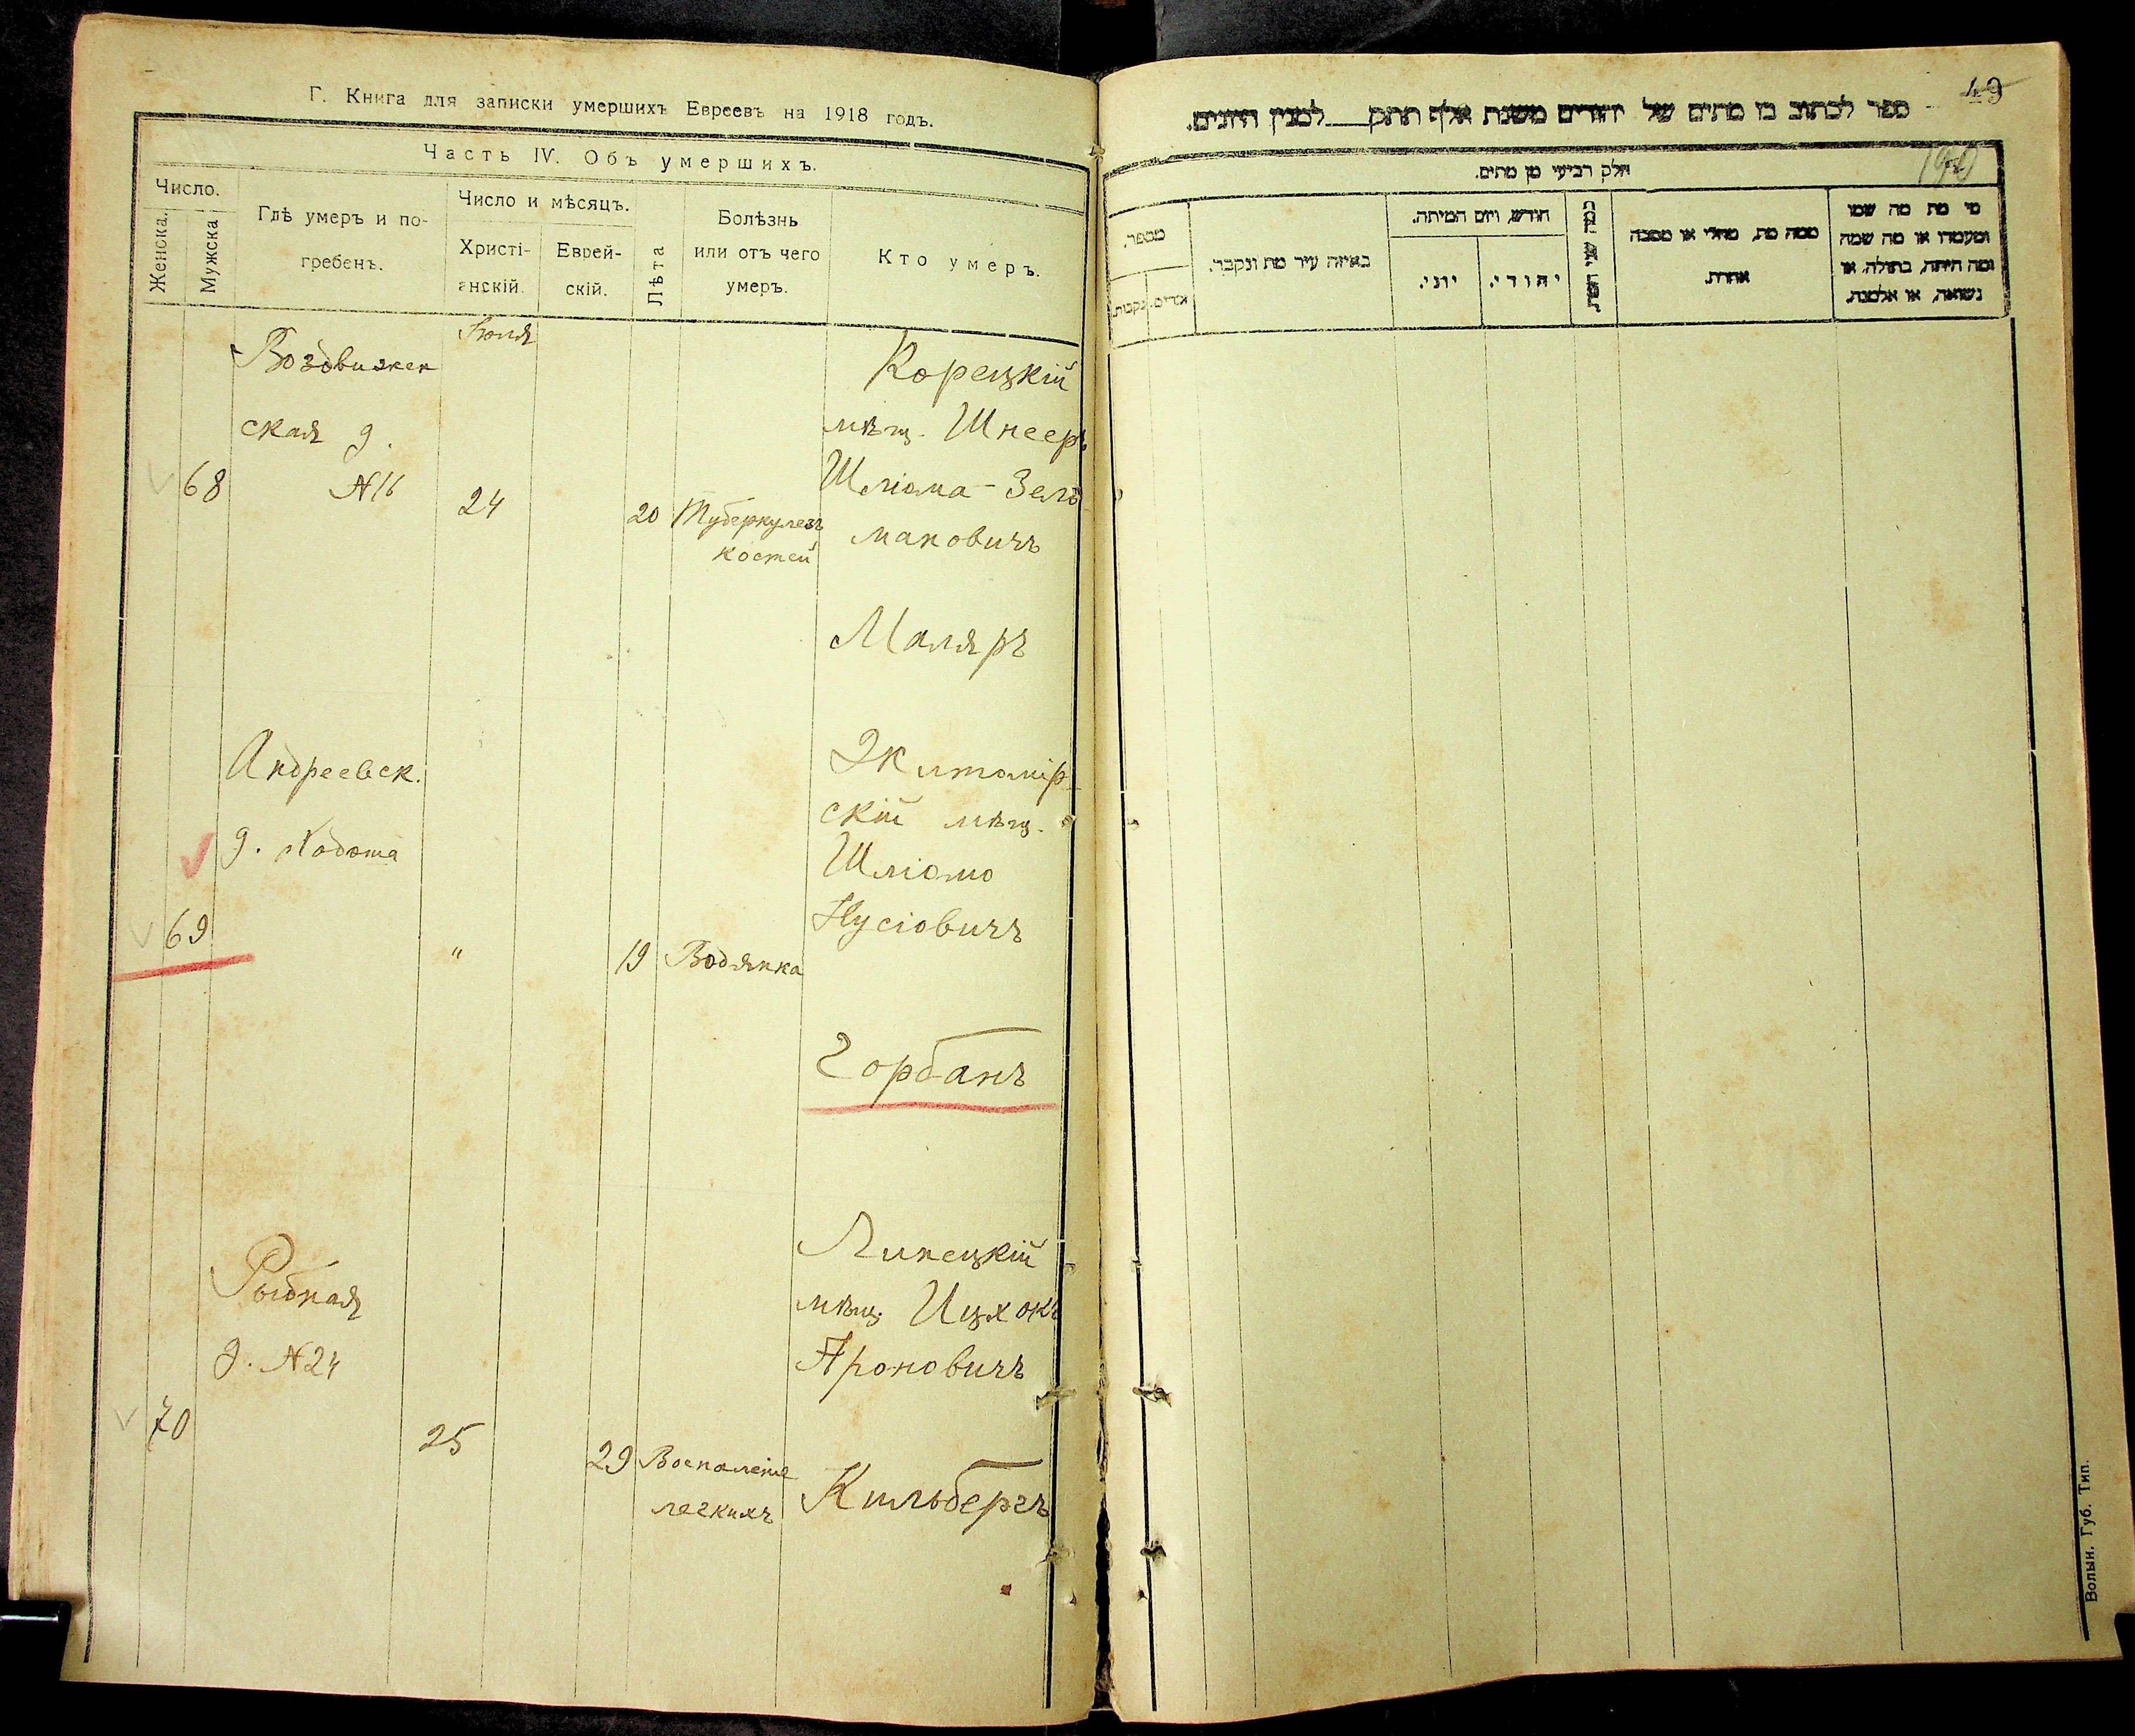 Г. Книга для записки умершихъ Евреевъ на 1918 годъ.
Часть IV. Объ умершихъ.
Число.
Женска.
Мужска
Гдѣ умеръ и по-
гребенъ.
Число и мѣсяцъ.
Христі-
анскій.
Еврей-
скій.
Лѣта
Болѣзнь
или отъ чего
умеръ.
Кто умеръ.
Воздвижен
ская д.
N16
68
24
20
Туберкулезъ
костей
Корецкій
мѣщ. Шнееръ
Шліома-Зель
мановичъ
Маляръ
Андреевск.
д.
69
"
19
Водянка
Житомір
скій мѣщ.
Шліомо
Нусіовичъ
Горбанъ
Рыбная
д. N24
70
25
29
Воспаленіе
легкихъ
Липецкій
мѣщ. Ицхокъ
Ароновичъ
Кильбергъ
49
ספר לכתוב בו מתים של יהודים משנת אלף תתק למנין היונים.
חלק רביעי מן מתים.
מספר.
נקבות.
זכרים.
באיזה עיר מת ונקבר.
חודש ויום המיתה.
יוני.
יהודי.
ממה מת, מחלי או מסבה
אחרת.
מי מת מה שמו
ומעמדו או מה שמה
ומה היתה, בתולה, או
נשואה, או אלמנה.
Волын. Губ. Тип.